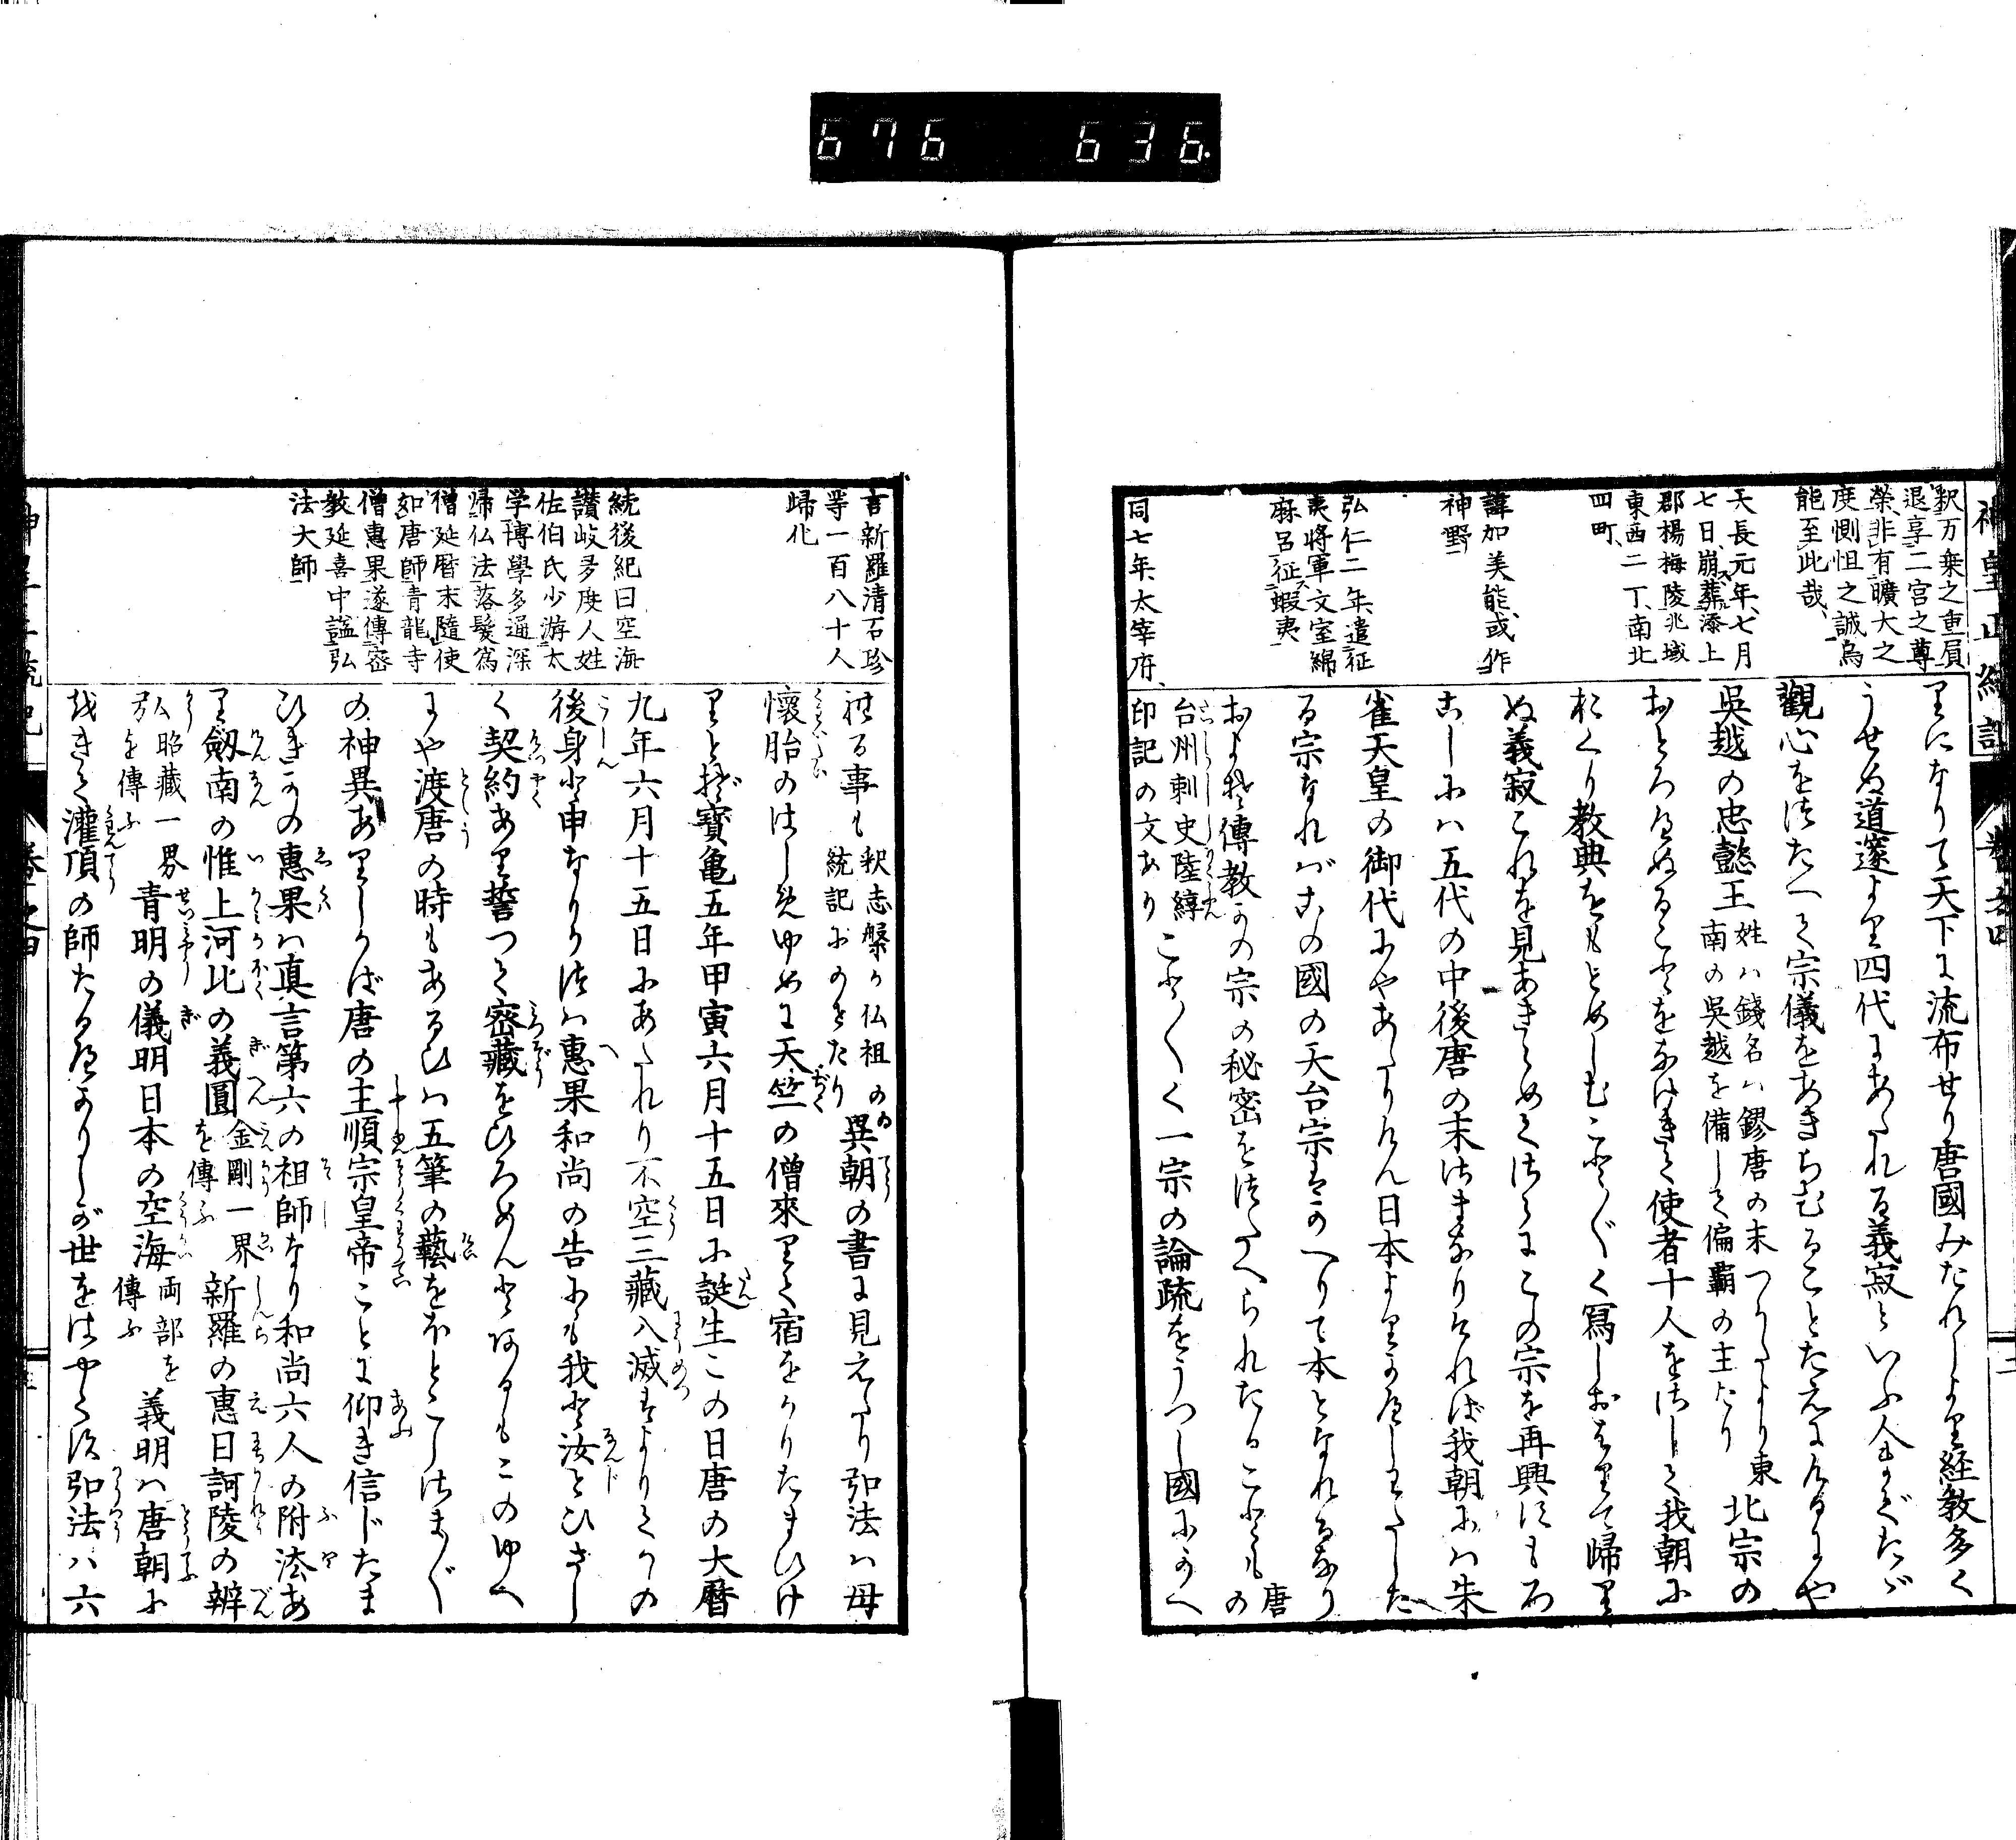 676 636.
神皇正統記 巻之四
釈万乗之重屓
退享二宮之尊
榮非有曠大之
度惻怛之誠烏
能至此哉
天長元年七月
七日崩葬添上
郡楊梅陵兆域
東西二丁南北
四町
諱加美能或作
神野
弘仁二年遣征
夷將軍文室綿
麻呂征蝦夷
同七年太宰府
里になりて天下に流布せり唐國みたれしより経教多く
うせぬ道邃より四代にあたれる義寂といふ人まてたゞ
觀心を伝たへて宗儀をあきらむることたえにけるにや
呉越の忠懿王 姓ハ錢名ハ鏐唐の末つかたより東南の呉越を備して偏覇の主たり 北宗の
おとろへぬることをなけきて使者十人をさして我朝に
おくり教典をもとめしむこと〴〵く寫しおハりて帰り
ぬ義寂これを見あきらめてさらにこの宗を再興すもろ
こしにハ五代の中後唐の末さまなりければ我朝にハ朱
雀天皇の御代にやあたりけん日本よりかへしわたした
る宗なれバこの國の天台宗はかへりて本となれるなり
およそ傳教かの宗の秘密を伝へられたることも 唐の
台州刺史陸淳印記の文あり こと〴〵く一宗の論疏をうつし國にかへ
言新羅清石珍
等一百八十人
歸化
続後紀曰空海
讃岐多度人姓
佐伯氏少游太
学博學多通深
帰仏法落髮為
僧延暦末隨使
如唐師青龍寺
僧惠果遂傳密
教延喜中謚弘
法大師
れる事も 釈志磐か仏祖統記にのせたり 異朝の書に見えたり弘法ハ母
懷胎のはしめゆめに天竺の僧來りて宿をかりたまひけ
りとぞ寳亀五年甲寅六月十五日に誕生この日唐の大暦
九年六月十五日にあたれり不空三藏入滅すよりてかの
後身と申なりかつハ惠果和尚の告にも我と汝とひさし
く契約あり誓つて密藏をひろめんとあるもこのゆへ
にや渡唐の時もあるひハ五筆の藝をほとこしさま〴〵
の神異ありしかば唐の主順宗皇帝ことに仰き信じたま
ひきかの惠果ハ真言第六の祖師なり和尚六人の附法あ
り劔南の惟上河北の義圓 金剛一界を傳ふ 新羅の惠日訶陵の辨
弘 胎藏一界を傳ふ 青明の儀明日本の空海 両部を傳ふ 義明ハ唐朝に
おきて灌頂の師たるへかりしが世をはやくす弘法ハ六